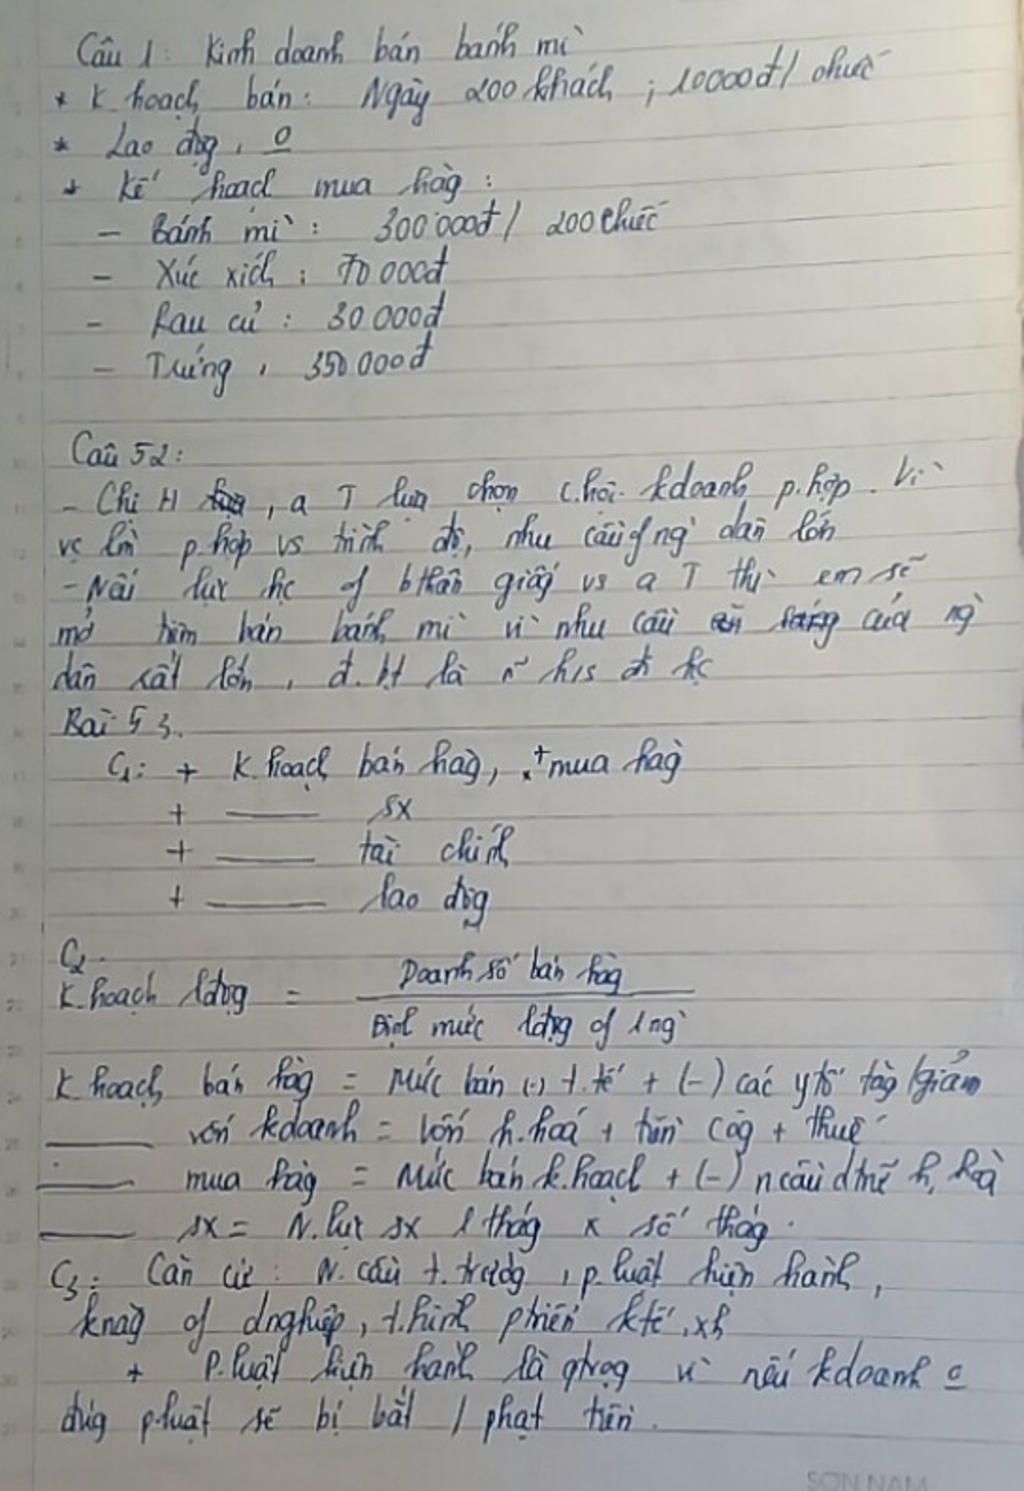 Câu 1: Kinh doanh bán bánh mì
* K hoạch bán: Ngày 200 khách ; 10000đ/ chiếc
* Lao độg, o
+ Kế hoach mua hàg:
- Bánh mì: 300 000đ/ 200 chiếc
- Xúc xích: 70 000đ
- Rau củ: 30 000đ
- Trứng, 350 000đ
Câu 52:
- Chi H, a T lựa chọn c.hội kdoanh p.hợp. Vì
vc lm p.hợp vs trình độ, nhu cầu of ng` dân lớn
- Nếu lực hc of bthân giốg vs a T thì em sẽ
mở tiệm bán bánh mì vì nhu cầu của ng`
dân rất lớn, đ.bt là n~ h/s đi hc
Bài 53.
C1: + K.hoạch bán hàg, + mua hàg
+ —— sx
+ —— tài chính
+ —— lao độg
C2.
K.hoạch lđộg = Doanh số bán hàg
Định mức lđộg of 1 ng`
K hoạch bán hàg = Mức bán (-) t.tế + (-) các ytố tăg/giảm
—— vốn kdoanh = Vốn h.hoá + tiền côg + thuế
—— mua hàg = Mức bán k.hoạch + (-) n cầu dtrữ h.hoá
—— sx = N.lực sx 1 thág x số thág.
C3: Căn cứ: N.cầu t.trườg, p.luật hiện hành,
knăg of dnghiệp, t.hình ptriển ktế, xh
+ P.luật hiện hành là qtrọg vì nếu kdoanh o
đúg p.luật sẽ bị bắt / phạt tiền.
SƠN NAM